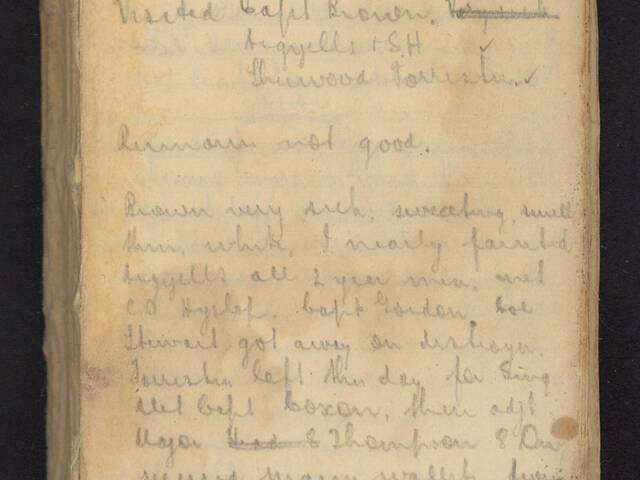 Visited Capt Brown,
Argylls & SH ✓
Sherwood Forresters ✓
Rumours not good.
Brown very sick, sweating, smell
thin, white, I nearly fainted
Argylls all 2 year men, met
CO Hyslop. Capt Gordon, Col
Stewart got away on destroyer.
Forresters left this day for Sing
Met Capt Coxon, then adjt
Major E Thompson 8 Div
many